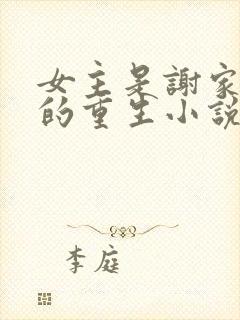 女主是謝家
的重生小說
李庭